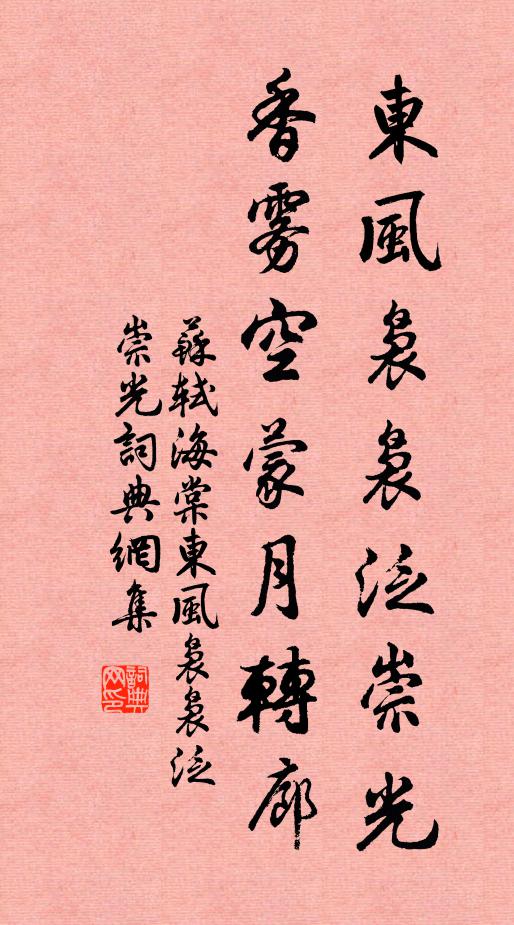 東風裊裊泛崇光
香雾空蒙月轉廊
蘇軾海棠東風裊裊泛
崇光詞典網集
詞典
网印